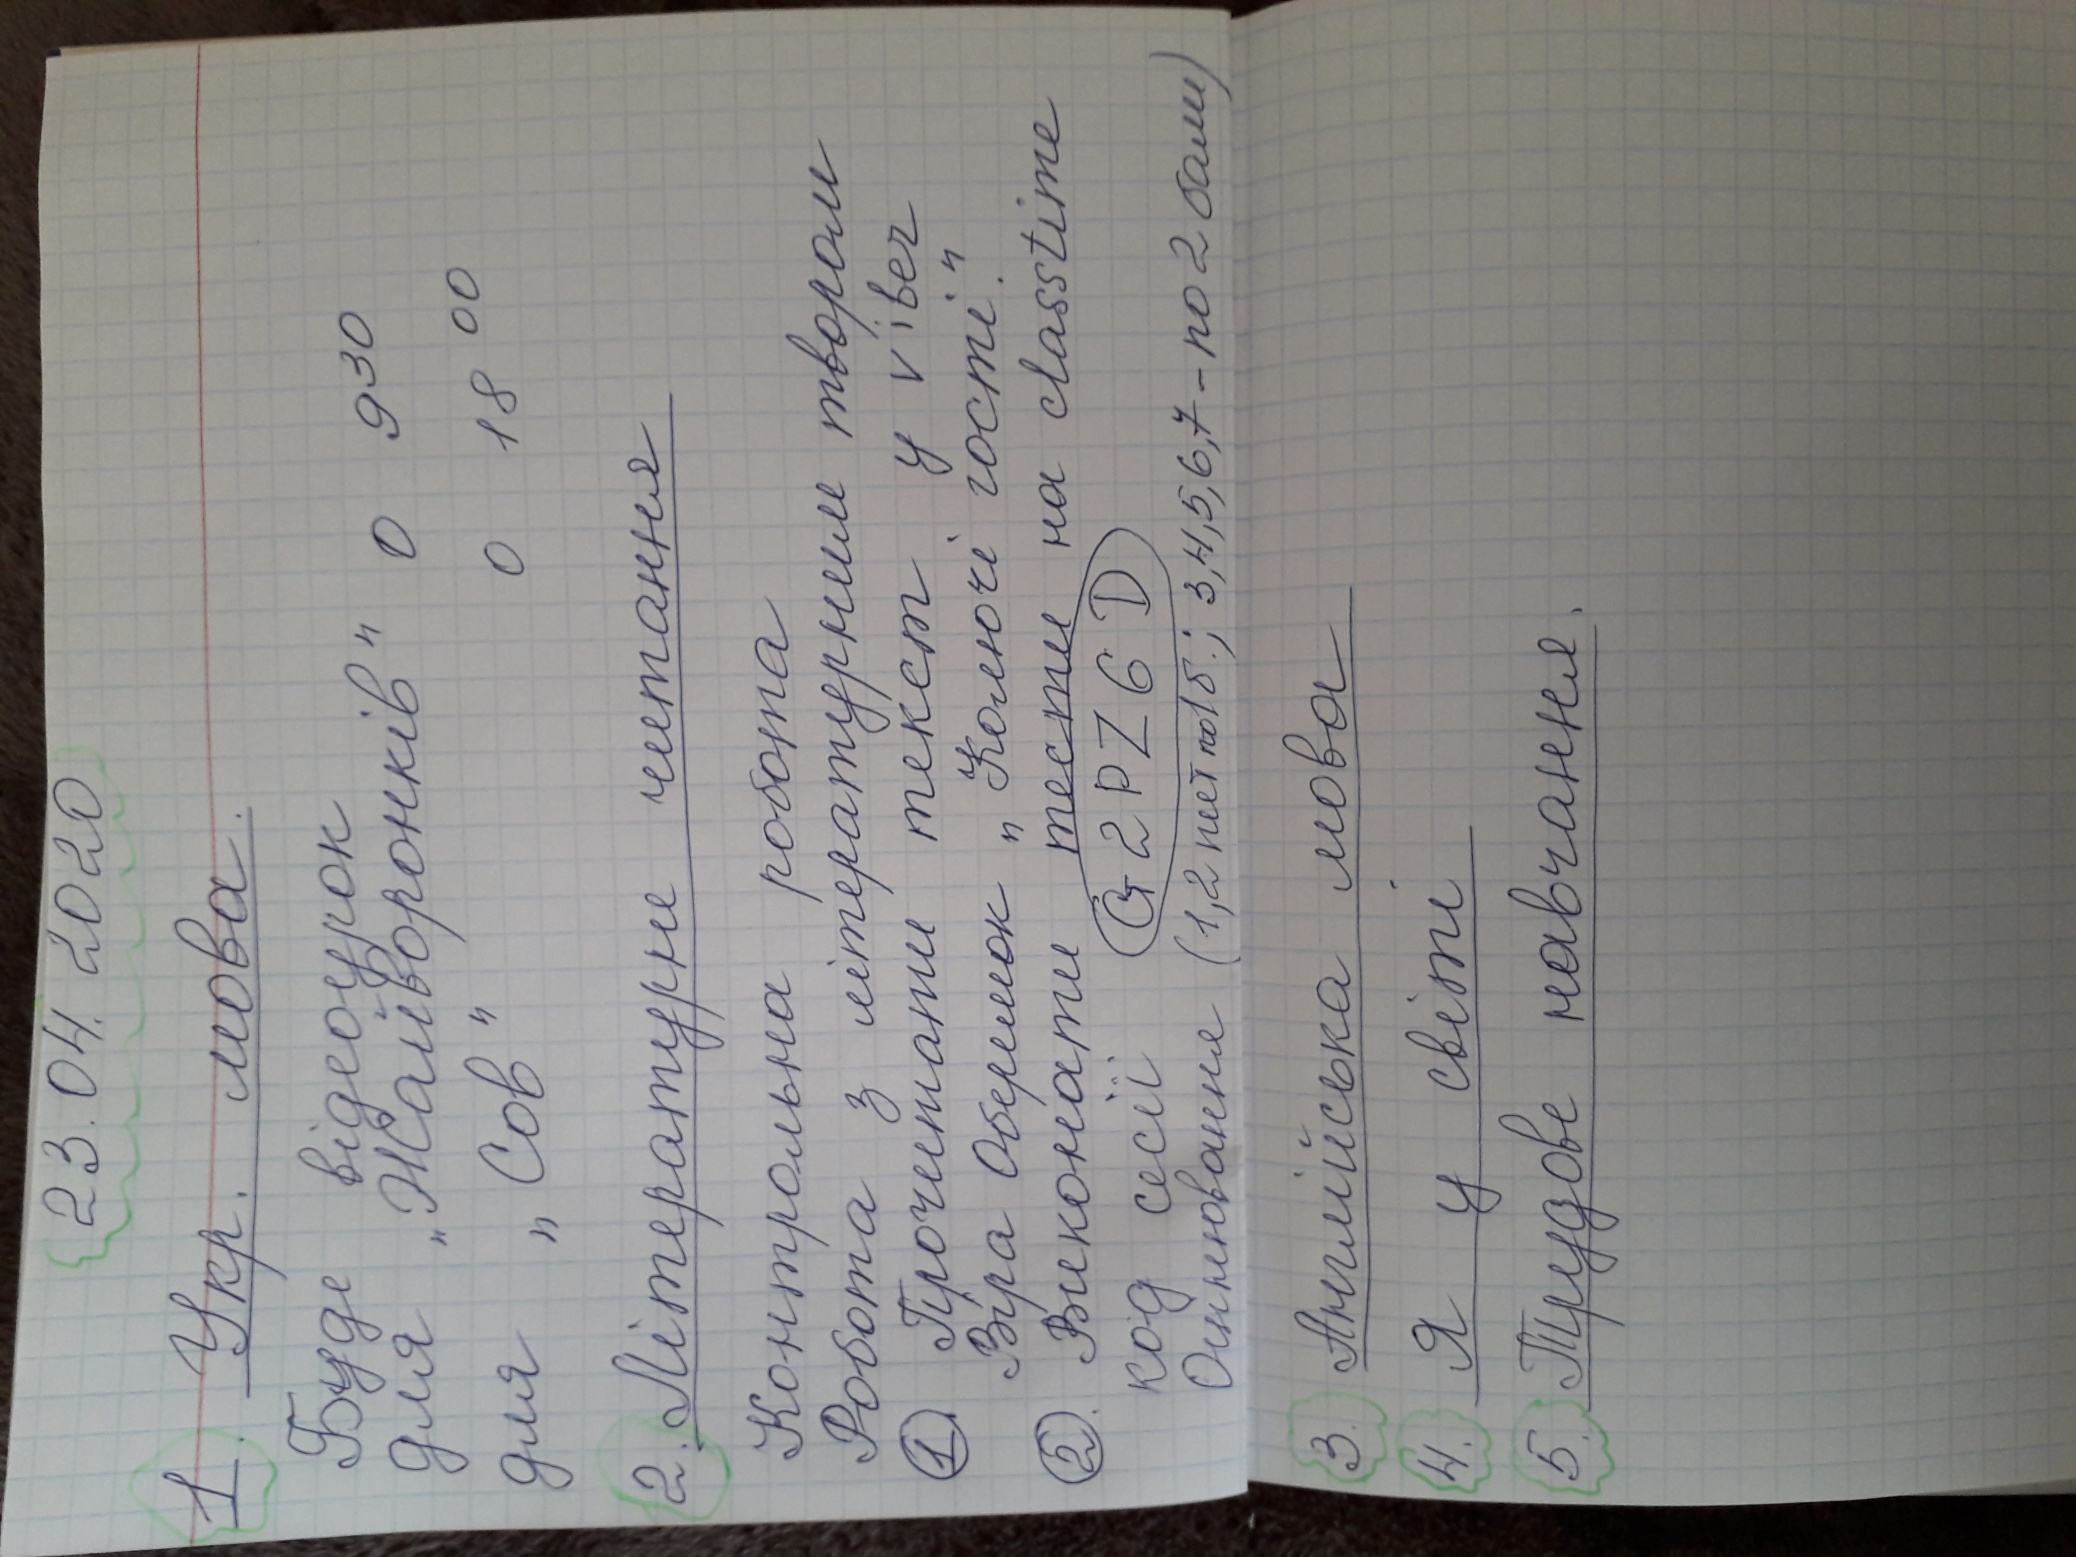 23.04.2020
1. Укр. мова.
Буде відеоурок
для „Жайворонків" о 9 30
для „Сов" о 18 00
2. Літературне читання
Контрольна робота
Робота з літературним твором
1. Прочитати текст у viber
Віра Обермок „Колючі гості."
2. Виконати тести на classtime
код сесії G2PZ6D
Оцінювання (1,2 пит по 1 б.; 3,4,5,6,7 - по 2 бали)
3. Англійська мова
4. Я у світі
5. Трудове навчання.